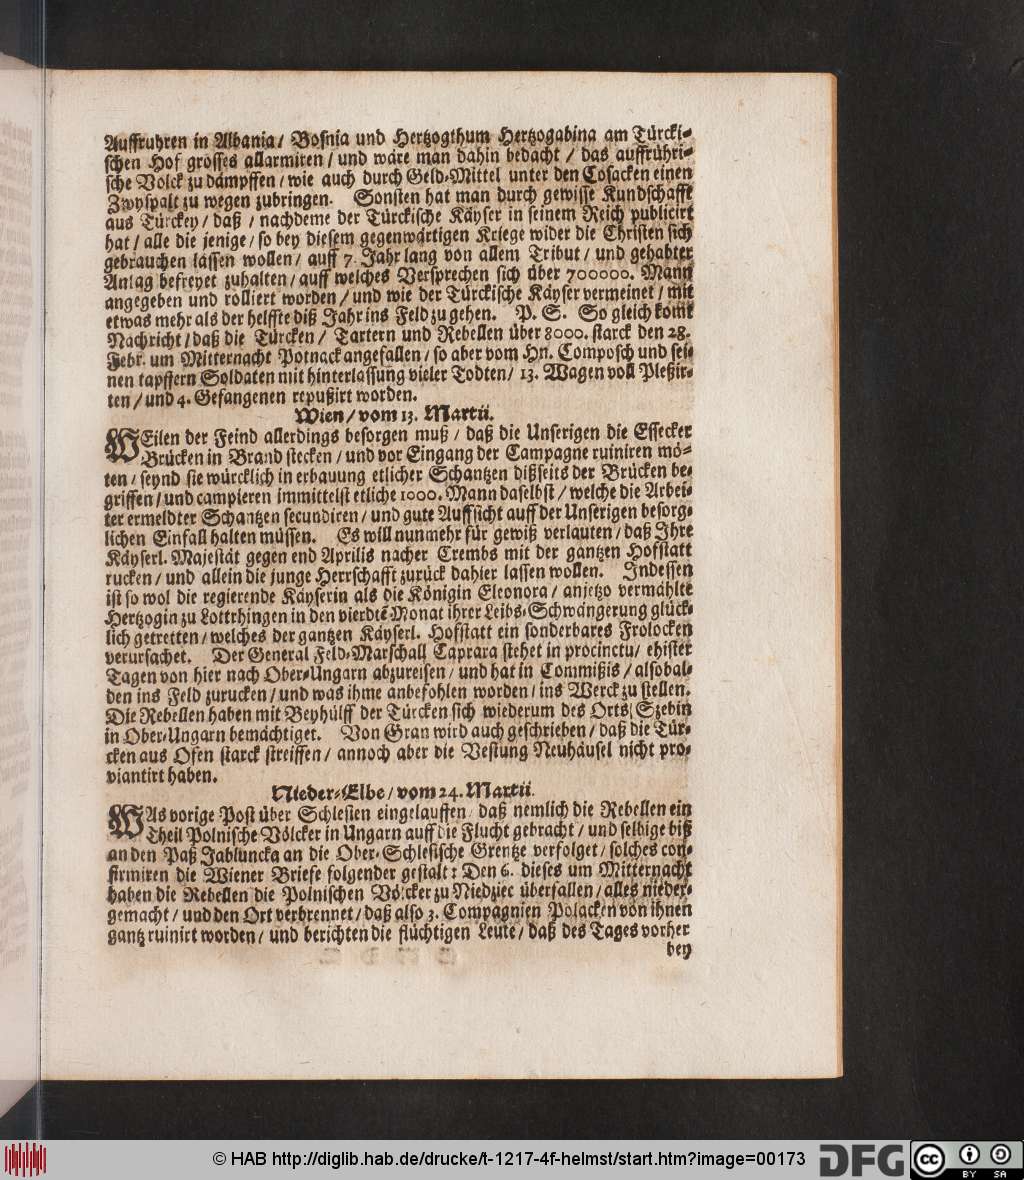 Auffruhren in Albania/ Bosnia und Hertzogthum Hertzogabina am Türcki-
schen Hof grosses allarmiren / und wäre man dahin bedacht / das auffrühri-
sche Volck zu dämpffen / wie auch durch Geld-Mittel unter den Cosacken einen
Zwyspalt zu wegen zubringen. Sonsten hat man durch gewisse Kundschafft
aus Türckey / daß / nachdeme der Türckische Käyser in seinem Reich publicirt
hat / alle die jenige / so bey diesem gegenwärtigen Kriege wider die Christen sich
gebrauchen lassen wollen / auff 7. Jahr lang von allem Tribut / und gehabter
Anlag befreyet zuhalten / auff welches Versprechen sich über 700000. Mann
angegeben und rolliert worden / und wie der Türckische Käyser vermeinet / mit
etwas mehr als der helffte diß Jahr ins Feld zu gehen. P. S. So gleich komt
Nachricht / daß die Türcken / Tartern und Rebellen über 8000. starck den 28.
Febr. um Mitternacht Potnack angefallen / so aber vom Hn. Composch und sei-
nen tapffern Soldaten mit hinterlassung vieler Todten / 13. Wagen voll Pleßir-
ten / und 4. Gefangenen repußirt worden.
Wien / vom 13. Martii.
WEilen der Feind allerdings besorgen muß / daß die Unserigen die Essecker
Brücken in Brand stecken / und vor Eingang der Campagne ruiniren mö-
ten / seynd sie würcklich in erbauung etlicher Schantzen dißseits der Brücken be-
griffen / und campieren immittelst etliche 1000. Mann daselbst / welche die Arbei-
ter ermeldter Schantzen secundiren / und gute Auffsicht auff der Unserigen besorg-
lichen Einfall halten müssen. Es will nunmehr für gewiß verlauten / daß Ihre
Käyserl. Majestät gegen end Aprilis nacher Crembs mit der gantzen Hofstatt
rucken / und allein die junge Herrschafft zurück dahier lassen wollen. Indessen
ist so wol die regierende Käyserin als die Königin Eleonora / anjetzo vermählte
Hertzogin zu Lottrhingen in den vierdtē Monat ihrer Leibs-Schwängerung glück-
lich getretten / welches der gantzen Käyserl. Hofstatt ein sonderbares Frolocken
verursachet. Der General Feld-Marschall Caprara stehet in procinctu / ehister
Tagen von hier nach Ober-Ungarn abzureisen / und hat in Commißis / alsobal-
den ins Feld zurucken / und was ihme anbefohlen worden / ins Werck zu stellen.
Die Rebellen haben mit Beyhülff der Türcken sich wiederum des Orts Szebin
in Ober-Ungarn bemächtiget. Von Gran wird auch geschrieben / daß die Tür-
cken aus Ofen starck streiffen / annoch aber die Vestung Neuhäusel nicht pro-
viantirt haben.
Nieder-Elbe / vom 24. Martii.
WAs vorige Post über Schlesien eingelauffen / daß nemlich die Rebellen ein
Theil Polnische Völcker in Ungarn auff die Flucht gebracht / und selbige biß
an den Paß Jabluncka an die Ober-Schlesische Grentze verfolget / solches con-
firmiren die Wiener Briefe folgender gestalt: Den 6. dieses um Mitternacht
haben die Rebellen die Polnischen Völcker zu Niedziec überfallen / alles nieder-
gemacht / und den Ort verbrennet / daß also 3. Compagnien Polacken von ihnen
gantz ruinirt worden / und berichten die flüchtigen Leute / daß des Tages vorher
bey
© HAB http://diglib.hab.de/drucke/t-1217-4f-helmst/start.htm?image=00173
DFG
cc BY SA